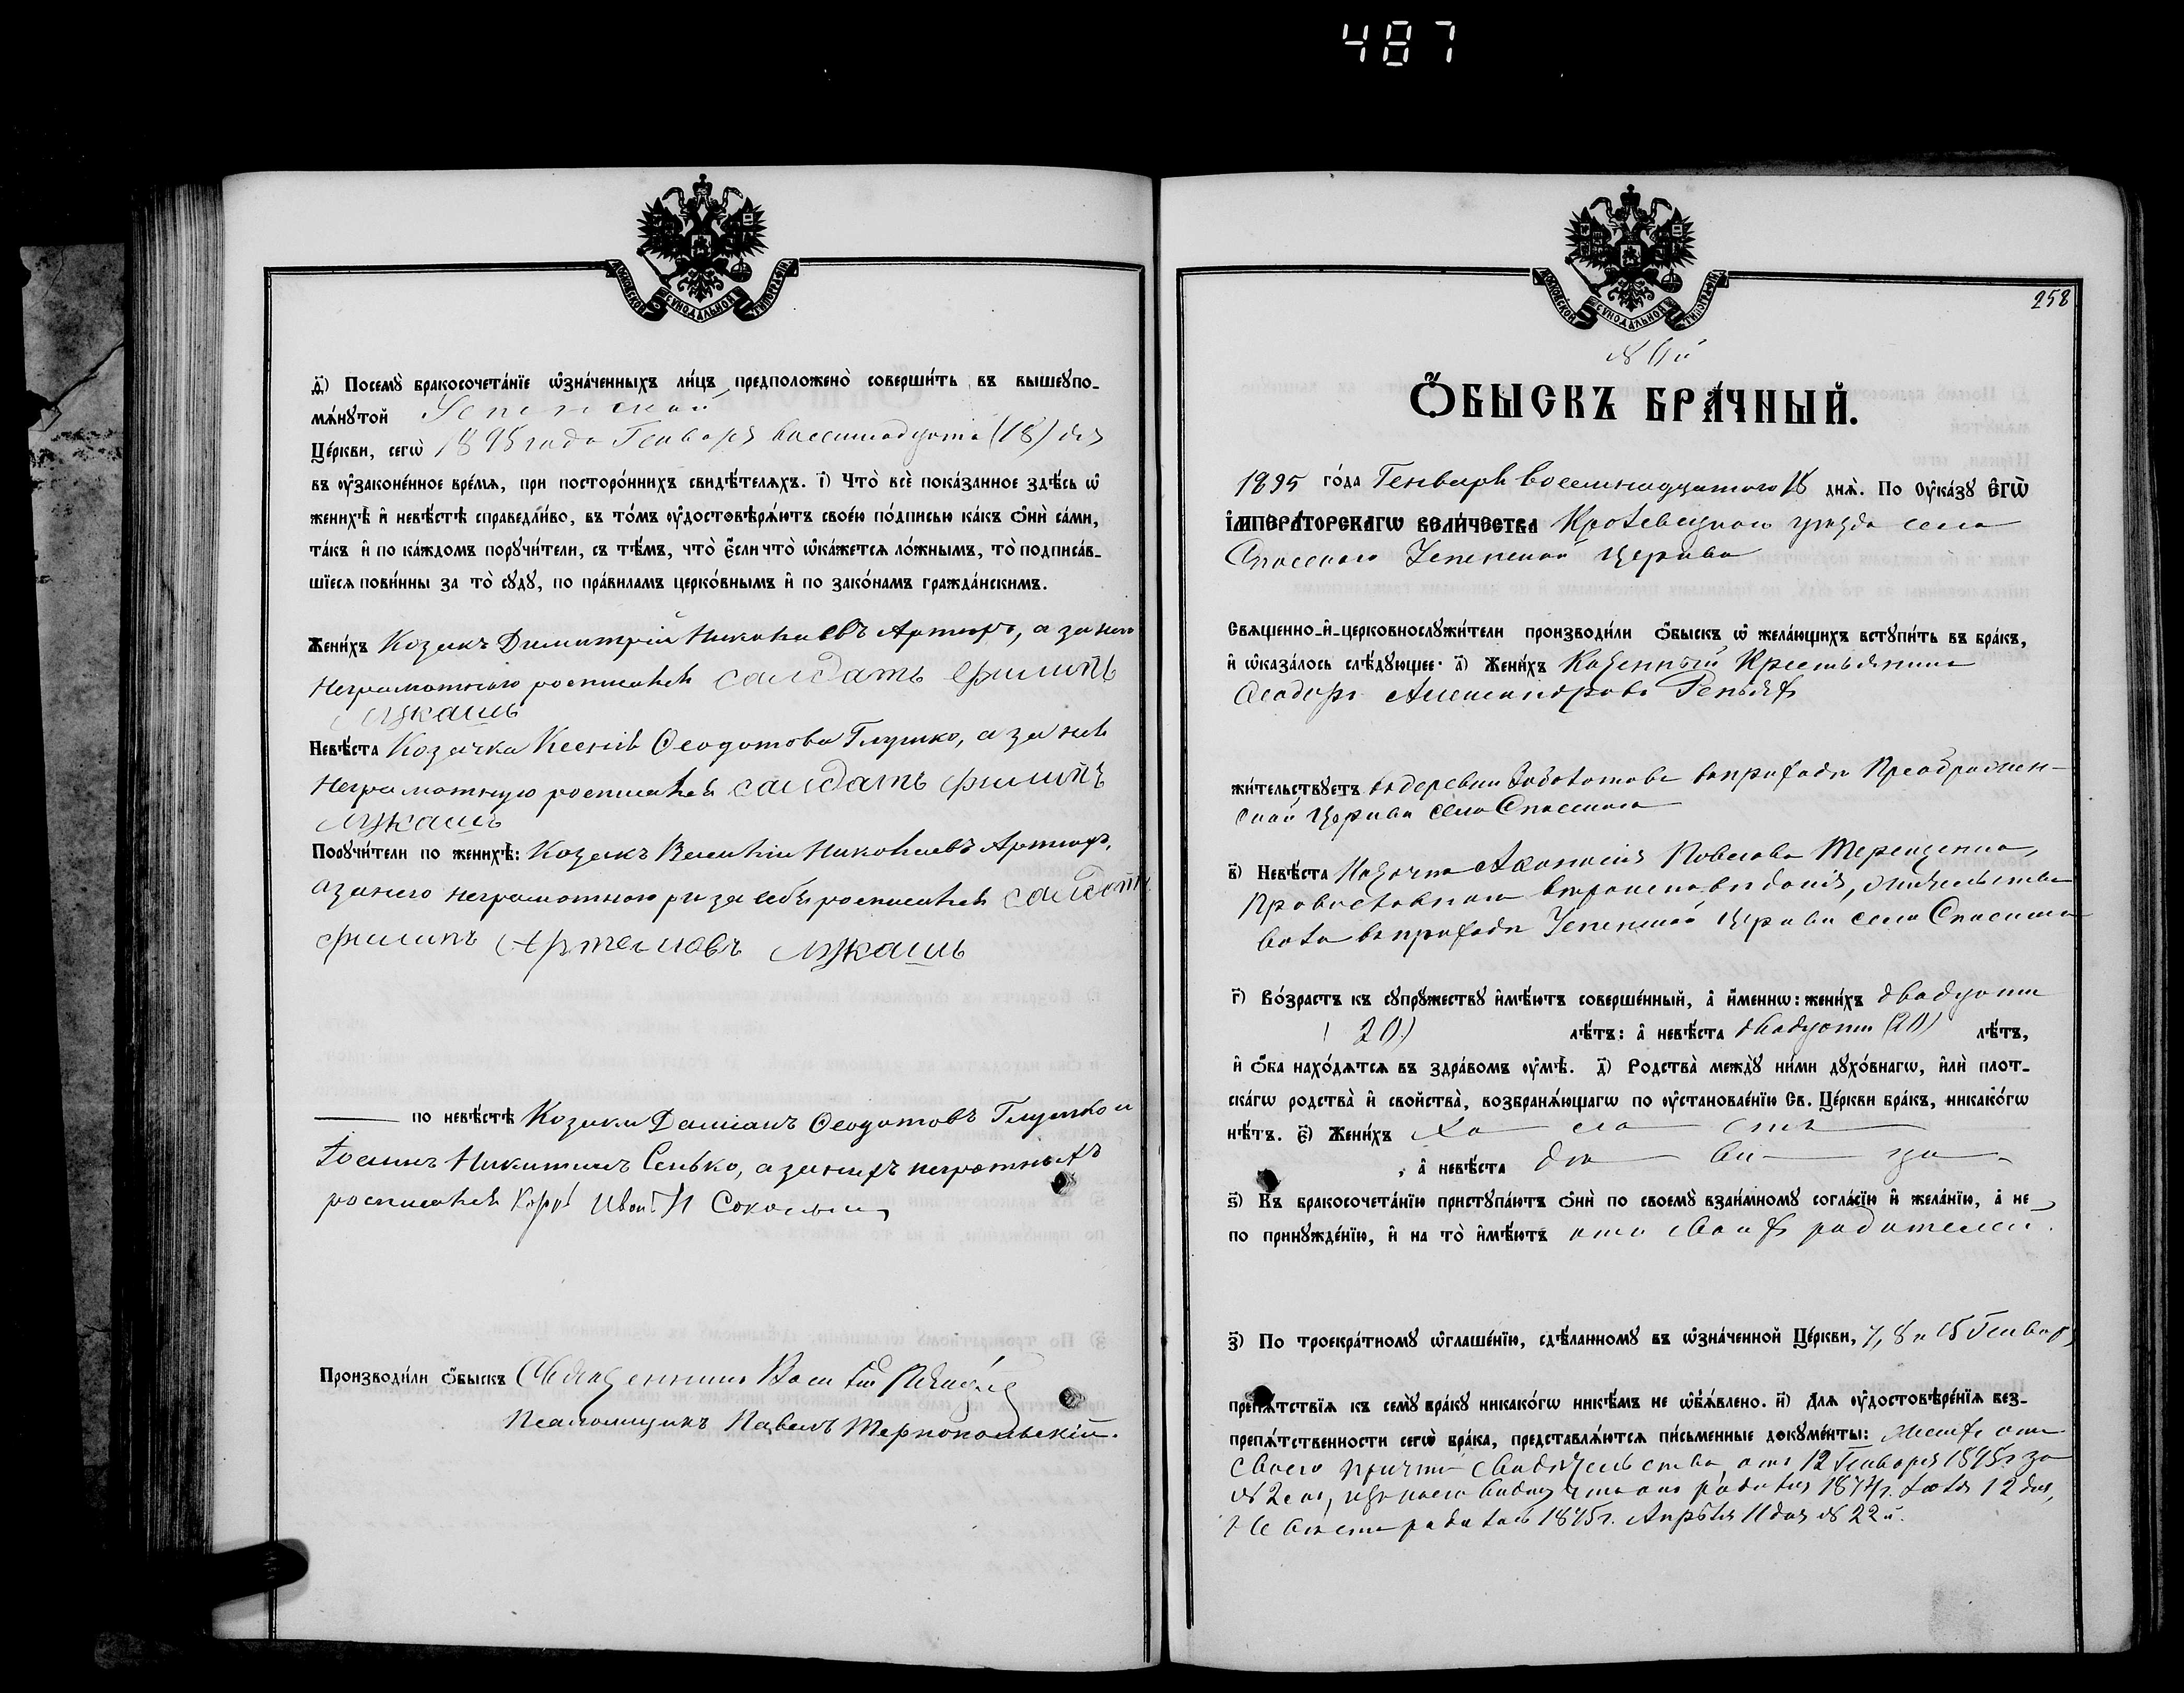 487
МОСКОВСКОЙ СѴНОДАЛЬНОЙ ТИПОГРАФІИ
д҃) Посемꙋ̀ бракосочета́нїе ѡ҆зна́ченныхъ ли́цъ предположено̀ соверши́ть въ вышеупо-
мѧ́нꙋтой Успенской
Це́ркви, сегѡ̀ 1895 года Генваря восемнадцата (18) дня
въ ᲂу҆законе́нное вре́мѧ, при посторо́ннихъ свидѣ́телѧхъ. і҃) Что̀ всѐ пока́занное здѣ́сь ѡ҆
женихѣ̀ и҆ невѣ́стѣ справедли́во, въ то́мъ ᲂу҆достовѣрѧ́ютъ свое́ю по́дписью ка́къ ѻ҆нѝ са́ми,
та́къ и҆ по ка́ждомъ порꙋчи́тели, съ тѣ́мъ, что̀ є҆́сли что̀ ѡ҆ка́жетсѧ ло́жнымъ, то̀ подписа́в-
шїесѧ пови́нны за то̀ сꙋдꙋ̀, по пра́виламъ церко́внымъ и҆ по зако́намъ гражда́нскимъ.
Жени́хъ Козакъ Димитрій Николаевъ Артюхъ, а за него
неграмотнаго росписался салдатъ Филипъ
Лукашъ
Невѣ́ста Козачка Ксенія Ѳеодотова Глушко, а за нея
неграмотную росписался салдатъ Филипъ
Лукашъ
Порꙋчи́тели по женихѣ̀: Козакъ Василій Николаевъ Артюхъ,
а за него неграмотнаго и за себя росписался салдатъ
Филипъ Артемовъ Лукашъ
по невѣ́стѣ Козаки Даміанъ Ѳеодотовъ Глушко и
Іоаннъ Никитинъ Сенько, а за нихъ неграмотныхъ
росписался Иванъ
Производи́ли ѻ҆́быскъ Священникъ Василій
Псаломщикъ Павелъ Тернопольскій.
МОСКОВСКОЙ СѴНОДАЛЬНОЙ ТИПОГРАФІИ
258
Ѻ҆́БЫСКЪ БРА́ЧНЫЙ.
1895 го́да Генваря восемнадцатого 18 днѧ̀. По Оу҆ка́зꙋ Є҆ГѠ̀
І҆МПЕРА́ТОРСКАГѠ ВЕЛИ́ЧЕСТВА Кролевецкаго уѣзда села
Спасского Успенской Церкви
Свѧщенно-и҆-церковнослꙋжи́тели производи́ли ѻ҆́быскъ ѡ҆ жела́ющихъ встꙋпи́ть въ бра́къ,
и҆ ѡ҆каза́лось слѣ́дꙋющее: а҃) Жени́хъ Казенный Крестьянинъ
Ѳеодоръ Александровъ Репьяхъ
жи́тельствꙋетъ въ деревни въ приходѣ Преображен-
ской Церкви села Спасского
в҃) Невѣ́ста Казачка Аѳанасія Павлова Терещенко,
Православнаго вѣроисповѣданія, жительство-
вала въ приходѣ Успенской Церкви села Спасского
г҃) Во́зрастъ къ сꙋпрꙋ́жествꙋ и҆мѣ́ютъ соверше́нный, а҆ и҆́меннѡ: жени́хъ двадцати
(20) лѣ́тъ: а҆ невѣ́ста двадцати (20) лѣ́тъ,
и҆ ѻ҆́ба нахо́дѧтсѧ въ здра́вомъ ᲂу҆мѣ̀. д҃) Родства̀ междꙋ̀ ни́ми дꙋхо́внагѡ, и҆лѝ плот-
ска́гѡ родства̀ и҆ свойства̀, возбранѧ́ющагѡ по ᲂу҆становле́нїю Св. Це́ркви бра́къ, никако́гѡ
нѣ́тъ. є҃) Жени́хъ Хо ло стъ
, а҆ невѣ́ста дѣ ви ца
ѕ҃) Къ бракосочета́нїю пристꙋпа́ютъ ѻ҆нѝ по своемꙋ̀ взаи́мномꙋ согла́сїю и҆ жела́нїю, а҆ не
по принꙋжде́нїю, и҆ на то̀ и҆мѣ́ютъ отъ своихъ родителей.
з҃) По троекра́тномꙋ ѡ҆глаше́нїю, сдѣ́ланномꙋ въ ѡ҆зна́ченной Це́ркви, 7, 8 и 15 Генваря
препѧ́тствїѧ къ семꙋ̀ бра́кꙋ никако́гѡ никѣ́мъ не ѡ҆б̾ѧ́влено. и҃) Длѧ ᲂу҆достовѣре́нїѧ без-
препѧ́тственности сегѡ̀ бра́ка, представлѧ́ютсѧ пи́сьменные докꙋме́нты: Женихъ отъ
своего причта свидѣтельство отъ 12 Генваря 1895 г. за
№ 2, изъ коего видно что онъ родился 1874 г. 12 дня,
Невѣста родилась 1875 г. Апрѣля 11 дня № 22 й.